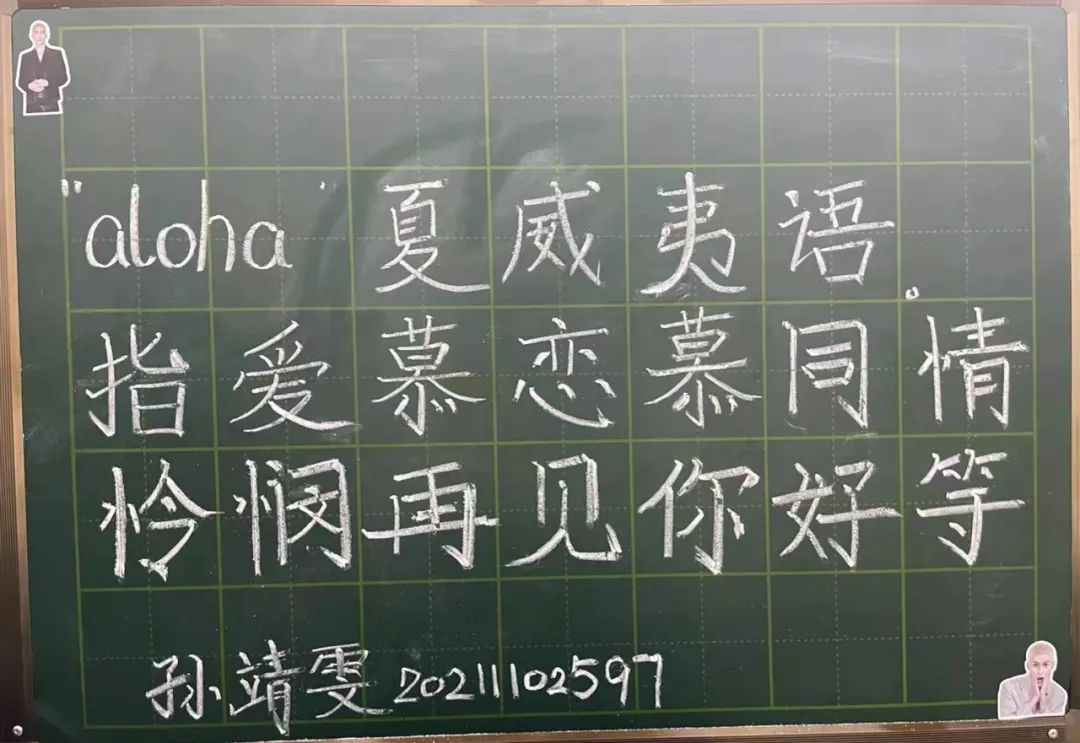 "aloha"夏威夷语。
指爱慕恋慕同情
怜悯再见你好等
孙靖雯20211102597